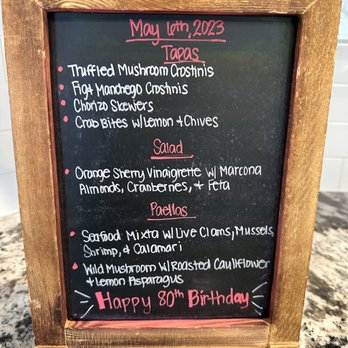 May 16th, 2023
Tapas
• Truffled Mushroom Crostinis
• Fig + Manchego Crostinis
• Chorizo Skewers
• Crab Bites w/ Lemon + Chives
Salad
• Orange Sherry Vinaigrette w/ Marcona
Almonds, Cranberries, + Feta
Paellas
• Seafood Mixta w/ Live Clams, Mussels,
Shrimp, & Calamari
• Wild Mushroom w/ Roasted Cauliflower
+ Lemon Asparagus
Happy 80th Birthday